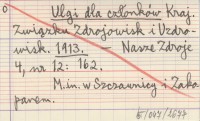 0
Ulgi dla członków Kraj.
Związku Zdrojowisk i Uzdro-
wisk. 1913. — Nasze Zdroje
4, nr 12: 162.
M.in. w Szczawnicy i Zako-
panem.